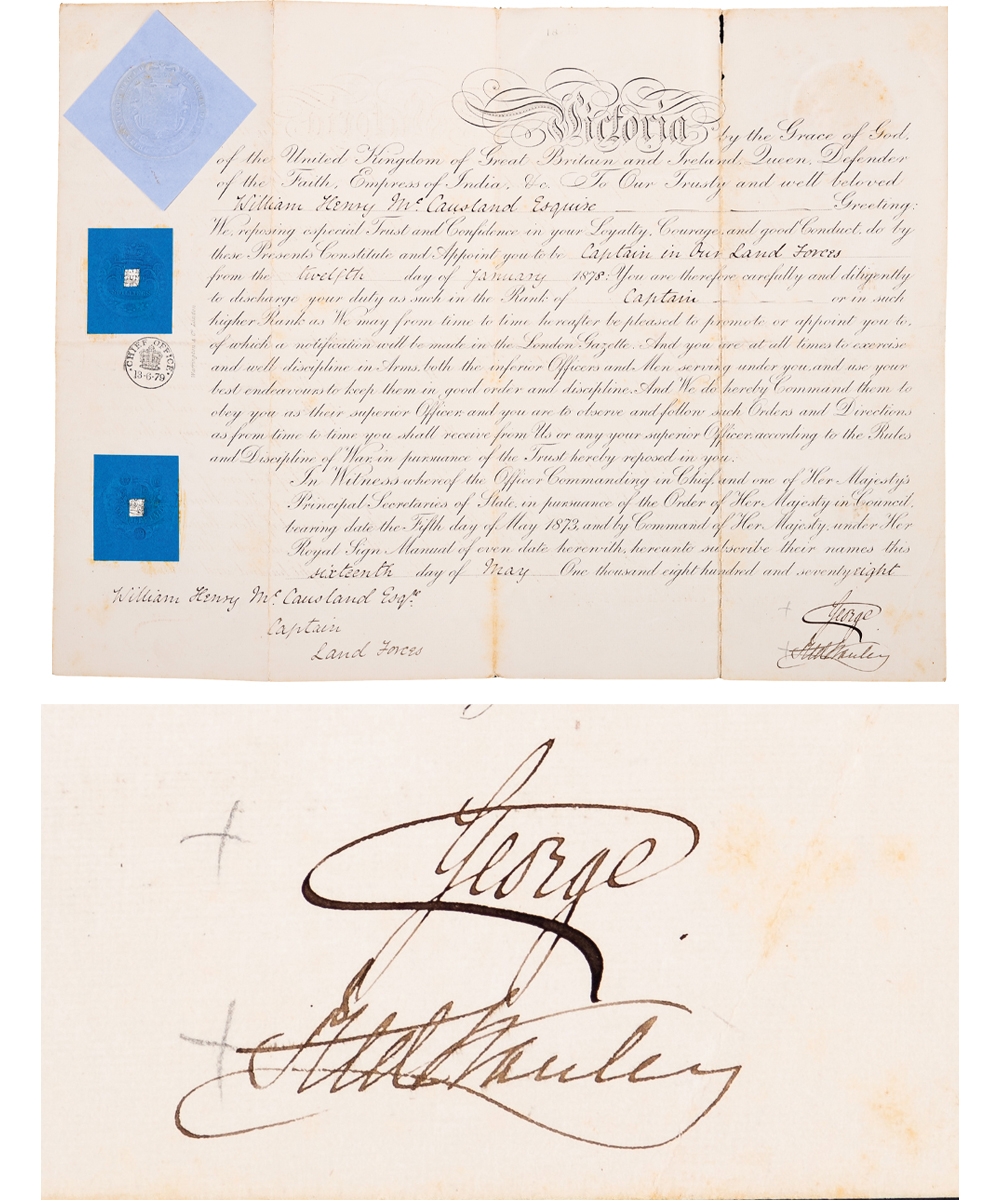 Victoria by the Grace of God,
of the United Kingdom of Great Britain and Ireland, Queen, Defender
of the Faith, Empress of India, &c. To Our Trusty and well beloved
William Henry McCausland Esquire Greeting:
We, reposing especial Trust and Confidence in your Loyalty, Courage, and good Conduct, do by
these Presents Constitute and Appoint you to be Captain in Our Land Forces
from the twelfth day of January 1878. You are therefore carefully and diligently
to discharge your duty as such in the Rank of Captain or in such
higher Rank as We may from time to time hereafter be pleased to promote or appoint you to,
of which a notification will be made in the London Gazette, And you are at all times to exercise
and well discipline in Arms, both the inferior Officers and Men serving under you, and use your
best endeavours to keep them in good order and discipline. And We do hereby Command them to
obey you as their superior Officer, and you are to observe and follow such Orders and Directions
as from time to time you shall receive from Us or any your superior Officer, according to the Rules
and Discipline of War, in pursuance of the Trust hereby reposed in you.
In Witness whereof the Officer Commanding in Chief, and one of Her Majesty's
Principal Secretaries of State, in pursuance of the Order of Her Majesty in Council,
bearing date the Fifth day of May 1873, and by Command of Her Majesty, under Her
Royal Sign Manual of even date herewith, hereunto subscribe their names this
sixteenth day of May One thousand eight hundred and seventy eight
CHIEF OFFICE
13-6-79
William Henry McCausland Esqre.
Captain
Land Forces
George
George